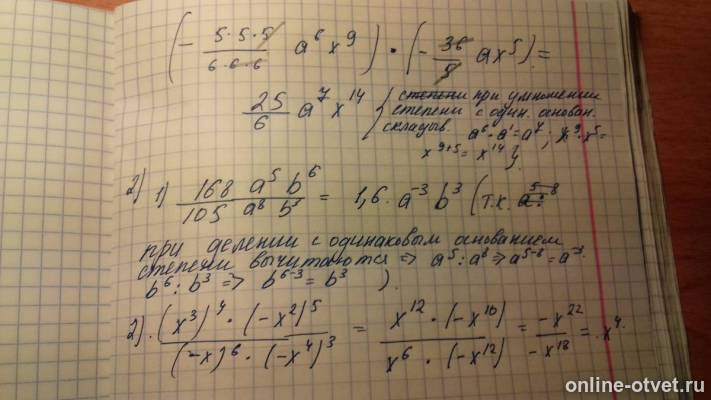 (- 5·5·5/6·6·6 a⁶x⁹) · (- 36/5 ax⁵) =
25/6 a⁷x¹⁴ { степени при умножении
степени с один. основан.
складыв. a⁶·a¹=a⁷; x⁹·x⁵=
x⁹⁺⁵= x¹⁴ }
2) 1) 168 a⁵ b⁶ / 105 a⁸ b³ = 1,6·a⁻³b³ (т.к.
при делении с одинаковым основанием
степени вычитаются => a⁵:a⁸=>a⁵⁻⁸=a⁻³.
b⁶:b³ => b⁶⁻³= b³ ).
2). (x³)⁴·(-x²)⁵ / (-x)⁶·(-x⁴)³ = x¹²·(-x¹⁰) / x⁶·(-x¹²) = -x²² / -x¹⁸ = x⁴.
online-otvet.ru